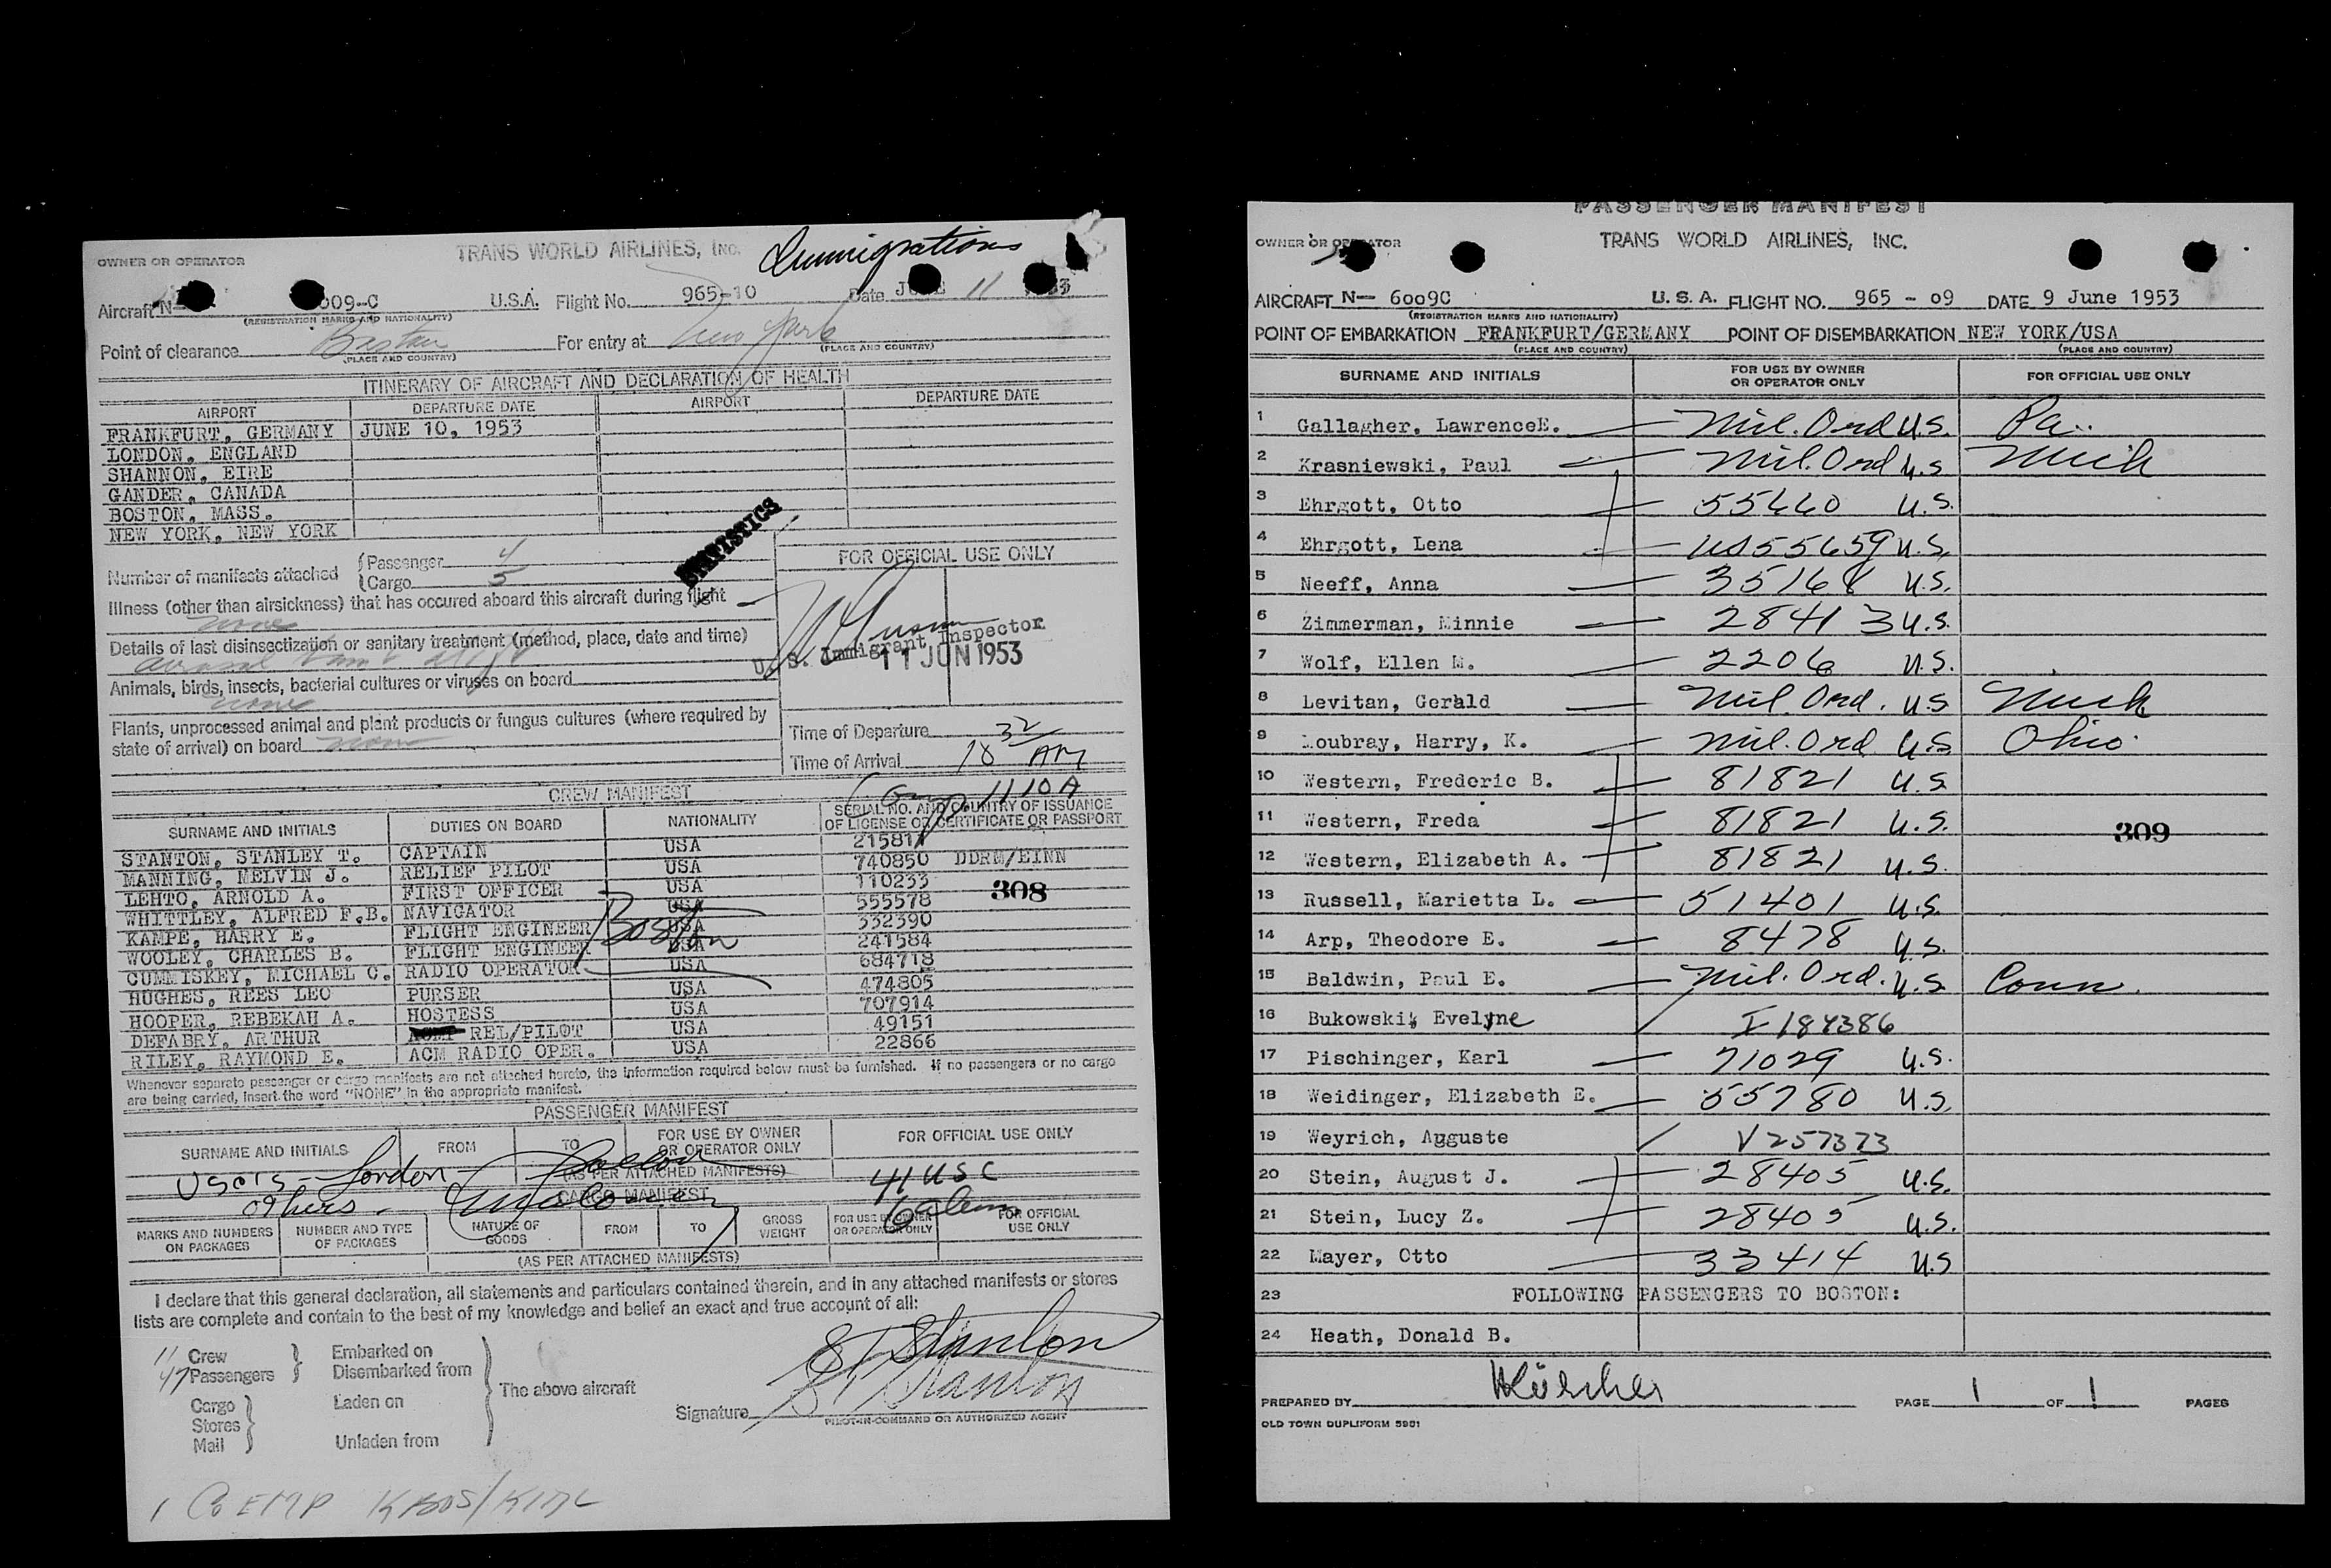 OWNER OR OPERATOR TRANS WORLD AIRLINES, INC. Immigrations
Aircraft N- 009-C U.S.A. Flight No. 965-10 Date JUNE 11
(REGISTRATION MARKS AND NATIONALITY)
Point of clearance Boston For entry at New York
(PLACE AND COUNTRY) (PLACE AND COUNTRY)
ITINERARY OF AIRCRAFT AND DECLARATION OF HEALTH
AIRPORT DEPARTURE DATE AIRPORT DEPARTURE DATE
FRANKFURT, GERMANY JUNE 10, 1953
LONDON, ENGLAND
SHANNON, EIRE
GANDER, CANADA
BOSTON, MASS.
NEW YORK, NEW YORK
STATISTICS
Number of manifests attached
Passenger 4
Cargo 5
FOR OFFICIAL USE ONLY
Illness (other than airsickness) that has occured aboard this aircraft during flight
none
Details of last disinsectization or sanitary treatment (method, place, date and time)
U. S. Immigrant Inspector
11 JUN 1953
Animals, birds, insects, bacterial cultures or viruses on board
none
Plants, unprocessed animal and plant products or fungus cultures (where required by
state of arrival) on board none
Time of Departure
Time of Arrival 10 32 AM
1110A
CREW MANIFEST
SURNAME AND INITIALS DUTIES ON BOARD NATIONALITY SERIAL NO. AND COUNTRY OF ISSUANCE OF LICENSE OR CERTIFICATE OR PASSPORT
STANTON, STANLEY T. CAPTAIN USA 215817
MANNING, MELVIN J. RELIEF PILOT USA 740850 DDRM/EINN
LEHTO, ARNOLD A. FIRST OFFICER USA 110233
WHITTLEY, ALFRED F.B. NAVIGATOR USA 555578
KAMPE, HARRY E. FLIGHT ENGINEER USA 332390
WOOLEY, CHARLES B. FLIGHT ENGINEER USA 241584
CUMMISKEY, MICHAEL C. RADIO OPERATOR USA 684718
HUGHES, REES LEO PURSER USA 474805
HOOPER, REBEKAH A. HOSTESS USA 707914
DEFABRY, ARTHUR REL/PILOT USA 49151
RILEY, RAYMOND E. ACM RADIO OPER. USA 22866
Boston
308
Whenever separate passenger or cargo manifests are not attached hereto, the information required below must be furnished. If no passengers or no cargo
are being carried, insert the word "NONE" in the appropriate manifest.
PASSENGER MANIFEST
SURNAME AND INITIALS FROM TO FOR USE BY OWNER OR OPERATOR ONLY FOR OFFICIAL USE ONLY
(AS PER ATTACHED MANIFESTS)
London 41 USC
others
CARGO MANIFEST
MARKS AND NUMBERS ON PACKAGES NUMBER AND TYPE OF PACKAGES NATURE OF GOODS FROM TO GROSS WEIGHT FOR USE BY OWNER OR OPERATOR ONLY FOR OFFICIAL USE ONLY
(AS PER ATTACHED MANIFESTS)
I declare that this general declaration, all statements and particulars contained therein, and in any attached manifests or stores
lists are complete and contain to the best of my knowledge and belief an exact and true account of all:
11 Crew Embarked on
47 Passengers Disembarked from
The above aircraft
Cargo Laden on
Stores
Mail Unladen from
S T Stanton
S T Stanton
Signature
PILOT-IN-COMMAND OR AUTHORIZED AGENT
1 Co EMP
PASSENGER MANIFEST
OWNER OR OPERATOR TRANS WORLD AIRLINES, INC.
AIRCRAFT N- 6009C U. S. A. FLIGHT NO. 965 - 09 DATE 9 June 1953
(REGISTRATION MARKS AND NATIONALITY)
POINT OF EMBARKATION FRANKFURT/GERMANY POINT OF DISEMBARKATION NEW YORK/USA
(PLACE AND COUNTRY) (PLACE AND COUNTRY)
SURNAME AND INITIALS FOR USE BY OWNER OR OPERATOR ONLY FOR OFFICIAL USE ONLY
1 Gallagher, LawrenceE. Mil. Ord U.S. Pa.
2 Krasniewski, Paul Mil. Ord U.S Mich
3 Ehrgott, Otto 55660 U.S.
4 Ehrgott, Lena 55659 U.S.
5 Neeff, Anna 35168 U.S.
6 Zimmerman, Minnie 28413 U.S.
7 Wolf, Ellen M. 2206 U.S.
8 Levitan, Gerald Mil. Ord. U.S Mich
9 Loubray, Harry, K. Mil. Ord U.S Ohio
10 Western, Frederic B. 81821 U.S
11 Western, Freda 81821 U.S.
12 Western, Elizabeth A. 81821 U.S.
309
13 Russell, Marietta L. 51401 U.S.
14 Arp, Theodore E. 8478 U.S.
15 Baldwin, Paul E. Mil. Ord. U.S Conn.
16 Bukowski, Evelyne I-184386
17 Pischinger, Karl 71029 U.S.
18 Weidinger, Elizabeth E. 55780 U.S.
19 Weyrich, Auguste V257373
20 Stein, August J. 28405 U.S.
21 Stein, Lucy Z. 28405 U.S.
22 Mayer, Otto 33414 U.S
23 FOLLOWING PASSENGERS TO BOSTON:
24 Heath, Donald B.
PREPARED BY PAGE 1 OF 1 PAGES
OLD TOWN DUPLIFORM 5981